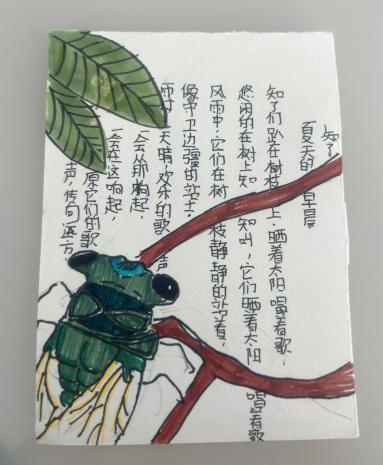 知了
夏天的早晨
知了们趴在树枝上,晒着太阳唱着歌,
悠闲的在树上知 知叫,它们晒着太阳 唱着歌
风雨中,它们在树枝静静的站着,
像守卫边疆的战士。
雨过天晴,欢乐的歌声
一会从那响起,
一会在这响起,
原它们的歌
声,传向远方